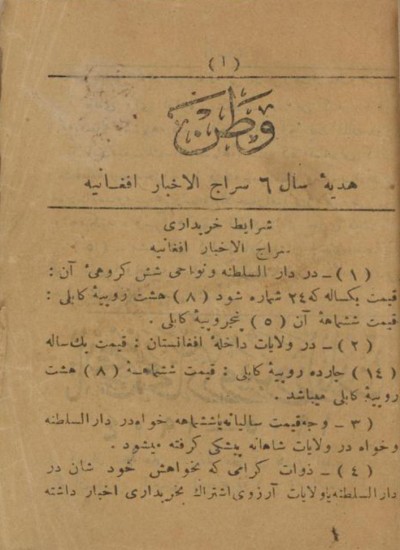 ( ۱ )
وطن
هدیهٔ سال ۶ سراج الاخبار افغانیه
شرایط خریداری
سراج الاخبار افغانیه
( ۱ ) – در دار السلطنه ونواحی شش کروهیٔ آن :
قیمت یکساله که ۲۴ شماره شود ( ۸ ) هشت روپیهٔ کابلی :
قیمت ششماههٔ آن ( ۵ ) پنجروپیهٔ کابلی .
( ۲ ) – در ولایات داخلهٔ افغانستان : قیمت یك ساله
( ۱۴ ) چارده روپیهٔ کابلی : قیمت ششماههٔ ( ۸ ) هشت
روپیهٔ کابلی میباشد .
۳ – وجه قیمت سالیانه یاششماهه خواه در دار السلطنه
وخواه در ولایات شاهانه پیشکی گرفته میشود .
( ۴ ) – ذوات کرامی که بخواهش خود شان در
دار السلطنه یاولایات آرزوی اشتراك بخریداری اخبار داشته